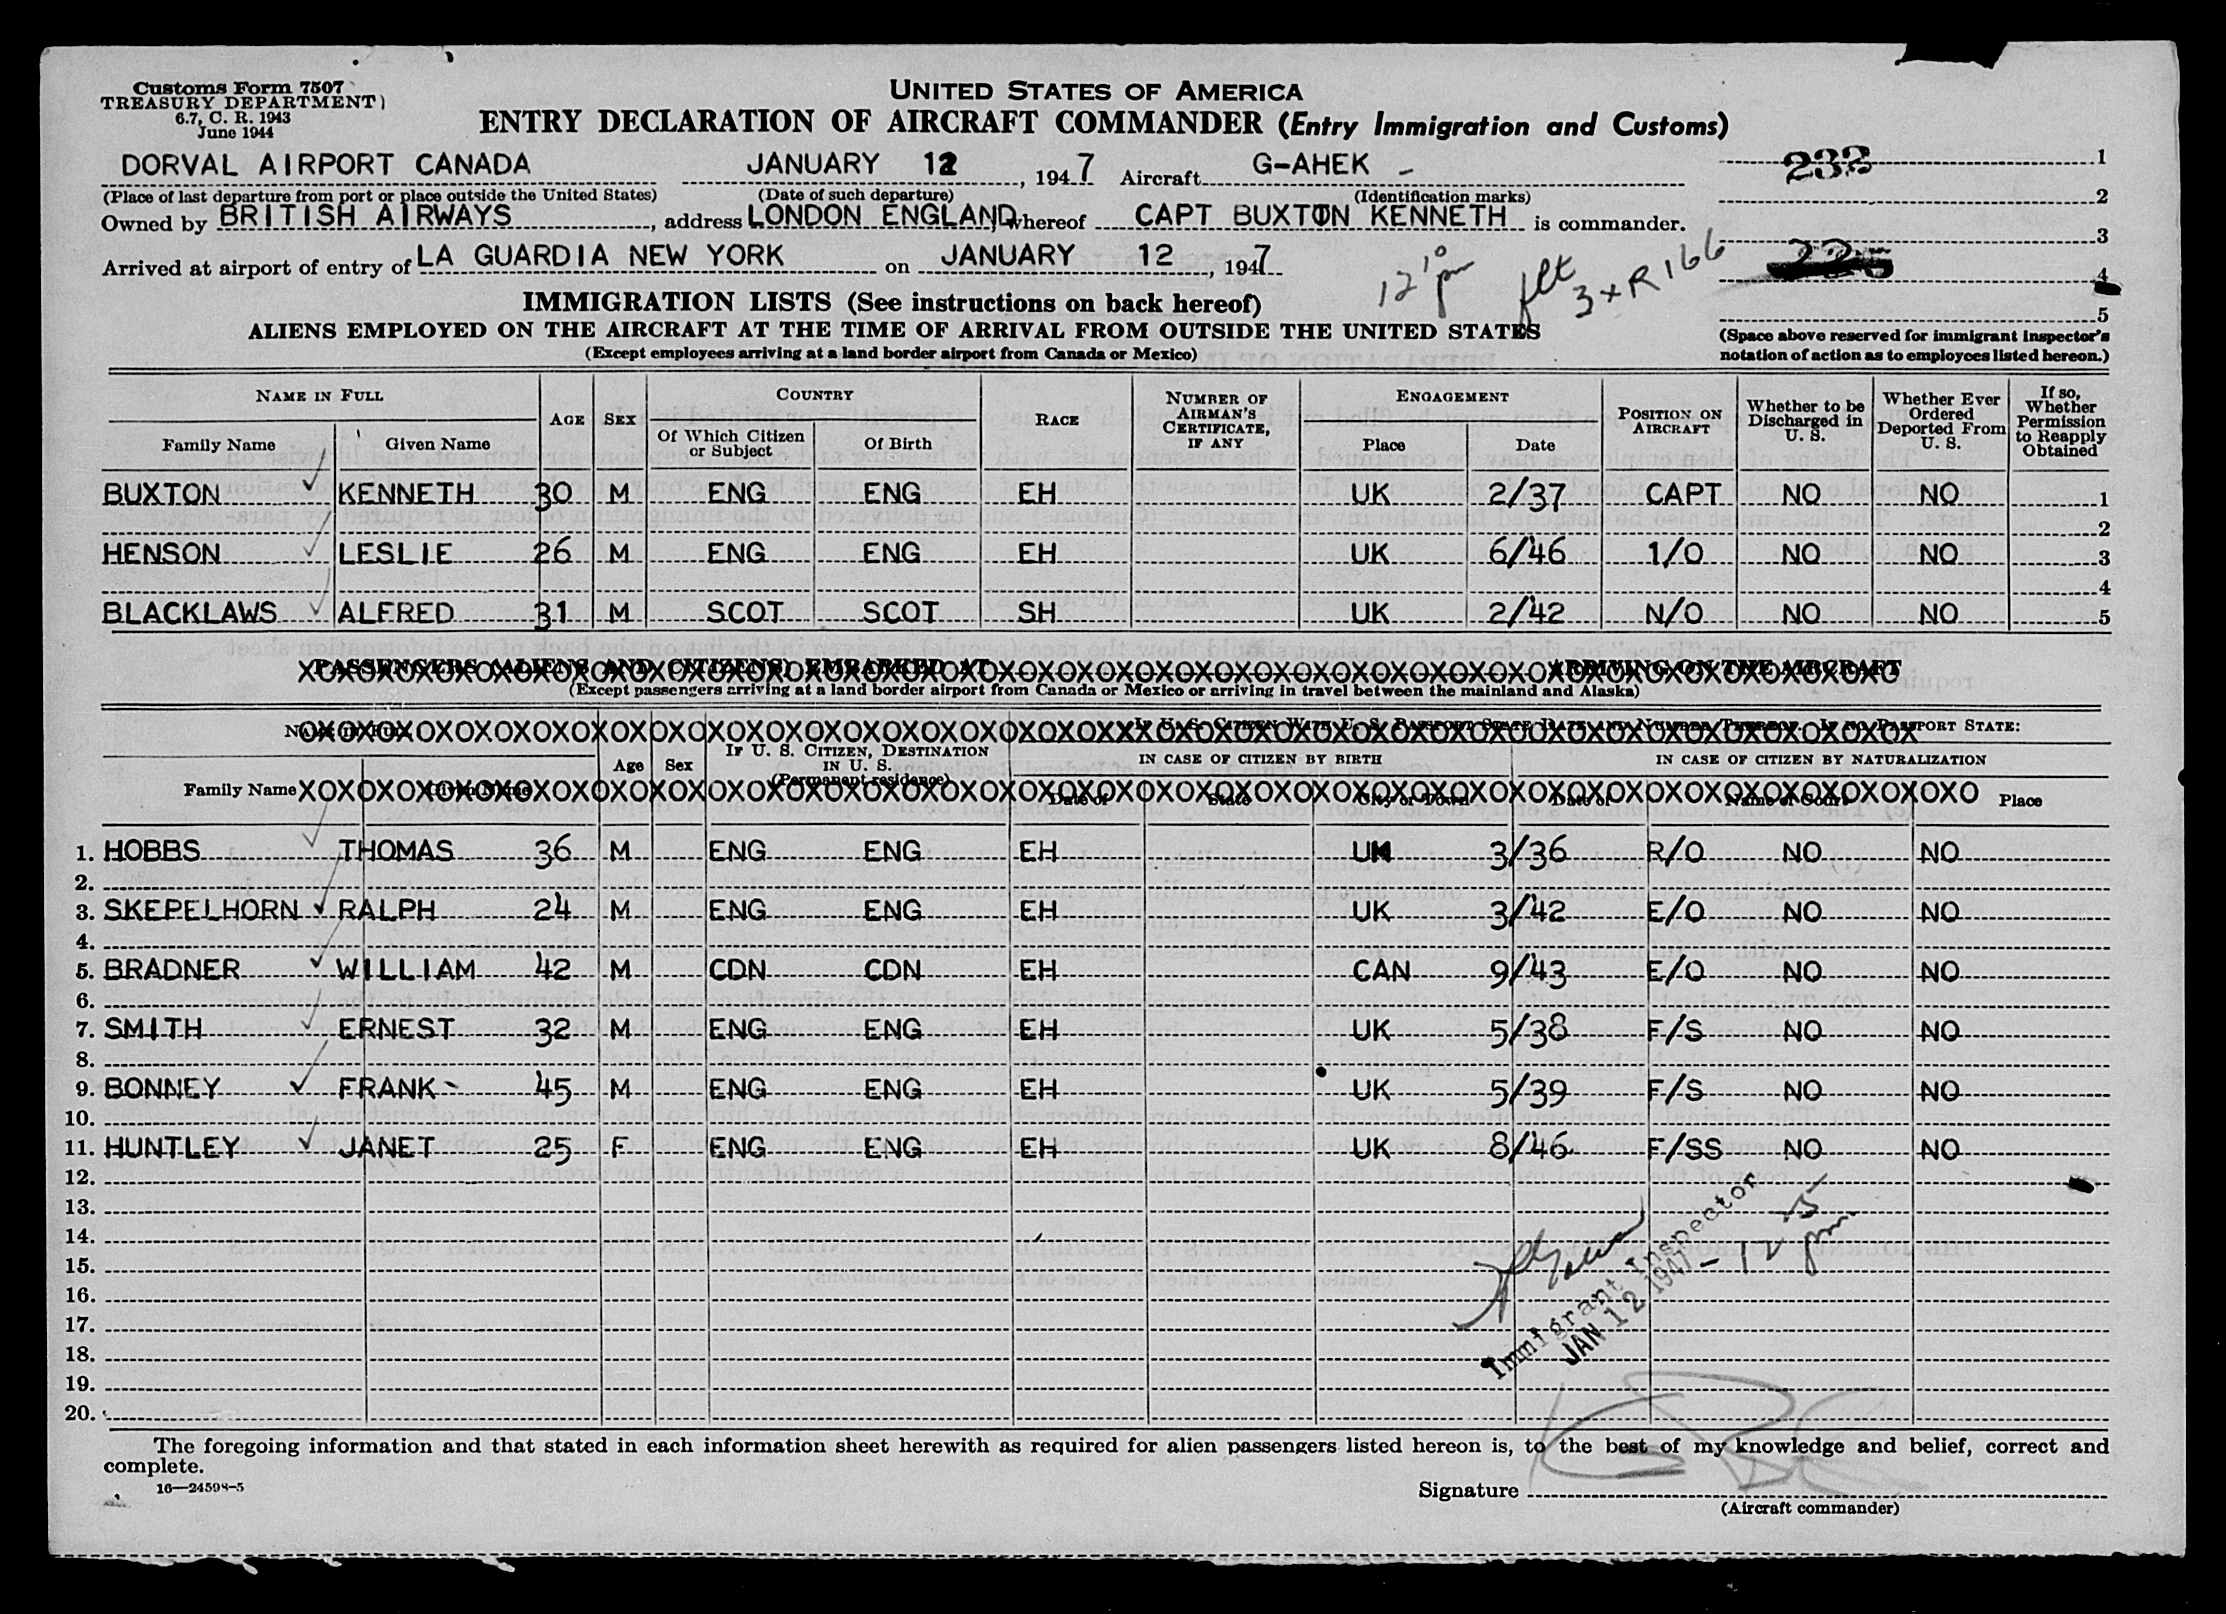 Customs Form 7507
TREASURY DEPARTMENT)
6.7, C. R. 1943
June 1944
UNITED STATES OF AMERICA
ENTRY DECLARATION OF AIRCRAFT COMMANDER (Entry Immigration and Customs)
DORVAL AIRPORT CANADA JANUARY 12, 1947 Aircraft G-AHEK 232 1
(Place of last departure from port or place outside the United States) (Date of such departure) (Identification marks) 2
Owned by BRITISH AIRWAYS, address LONDON ENGLAND, whereof CAPT BUXTON KENNETH is commander.
3
Arrived at airport of entry of LA GUARDIA NEW YORK on JANUARY 12, 1947 12 10 pm flt 3xR166 225 4
5
IMMIGRATION LISTS (See instructions on back hereof)
ALIENS EMPLOYED ON THE AIRCRAFT AT THE TIME OF ARRIVAL FROM OUTSIDE THE UNITED STATES
(Except employees arriving at a land border airport from Canada or Mexico)
(Space above reserved for immigrant inspector's notation of action as to employees listed hereon.)
NAME IN FULL AGE SEX COUNTRY RACE NUMBER OF AIRMAN'S CERTIFICATE, IF ANY ENGAGEMENT POSITION ON AIRCRAFT Whether to be Discharged in U. S. Whether Ever Ordered Deported From U. S. If so, Whether Permission to Reapply Obtained
Family Name Given Name Of Which Citizen or Subject Of Birth Place Date
BUXTON KENNETH 30 M ENG ENG EH UK 2/37 CAPT NO NO 1
2
HENSON LESLIE 26 M ENG ENG EH UK 6/46 1/O NO NO 3
4
BLACKLAWS ALFRED 31 M SCOT SCOT SH UK 2/42 N/O NO NO 5
PASSENGERS (ALIENS AND CITIZENS) EMBARKED AT ARRIVING ON THE AIRCRAFT
(Except passengers arriving at a land border airport from Canada or Mexico or arriving in travel between the mainland and Alaska)
NAME IN FULL IF U. S. CITIZEN WITH U. S. PASSPORT STATE DATE AND NUMBER THEREOF. IF NO PASSPORT STATE:
Age Sex IF U. S. CITIZEN, DESTINATION IN U. S. (Permanent residence) IN CASE OF CITIZEN BY BIRTH IN CASE OF CITIZEN BY NATURALIZATION
Family Name Given Name Date of State City or Town Date of Name of Court Place
1. HOBBS THOMAS 36 M ENG ENG EH UK 3/36 R/O NO NO
2.
3. SKEPELHORN RALPH 24 M ENG ENG EH UK 3/42 E/O NO NO
4.
5. BRADNER WILLIAM 42 M CDN CDN EH CAN 9/43 E/O NO NO
6.
7. SMITH ERNEST 32 M ENG ENG EH UK 5/38 F/S NO NO
8.
9. BONNEY FRANK 45 M ENG ENG EH UK 5/39 F/S NO NO
10.
11. HUNTLEY JANET 25 F ENG ENG EH UK 8/46 F/SS NO NO
12.
13.
14.
15.
16.
17.
18.
19.
20.
Immigrant Inspector
JAN 12 1947 - 12 25 pm
The foregoing information and that stated in each information sheet herewith as required for alien passengers listed hereon is, to the best of my knowledge and belief, correct and
complete.
16—24598-5
Signature
(Aircraft commander)